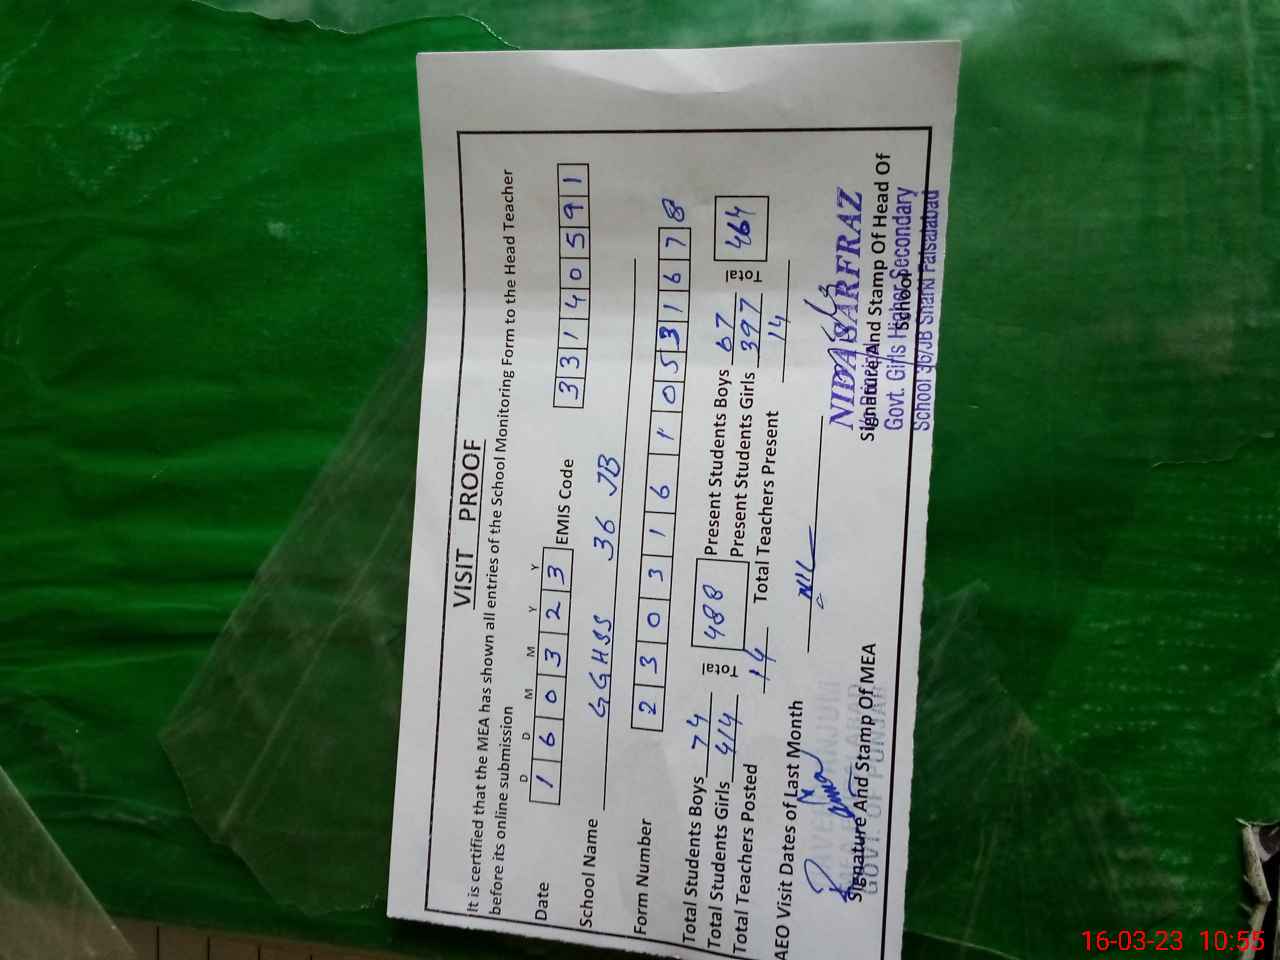 VISIT PROOF
It is certified that the MEA has shown all entries of the School Monitoring Form to the Head Teacher
before its online submission
D D M M Y Y
Date 1 6 0 3 2 3 EMIS Code 3 3 1 4 0 5 9 1
School Name GGHSS 36 JB
Form Number 2 3 0 3 1 6 1 0 5 3 1 6 7 8
Total Students Boys 74 Total 488 Present Students Boys 67 Total 464
Total Students Girls 414 Present Students Girls 397
Total Teachers Posted 14 Total Teachers Present 14
AEO Visit Dates of Last Month NIL
NIDA SARFRAZ
Signature And Stamp Of MEA Signature And Stamp Of Head Of
School
GOVT. OF PUNJAB
Govt. Girls Higher Secondary
School 36/JB Sharki Faisalabad
16-03-23 10:55